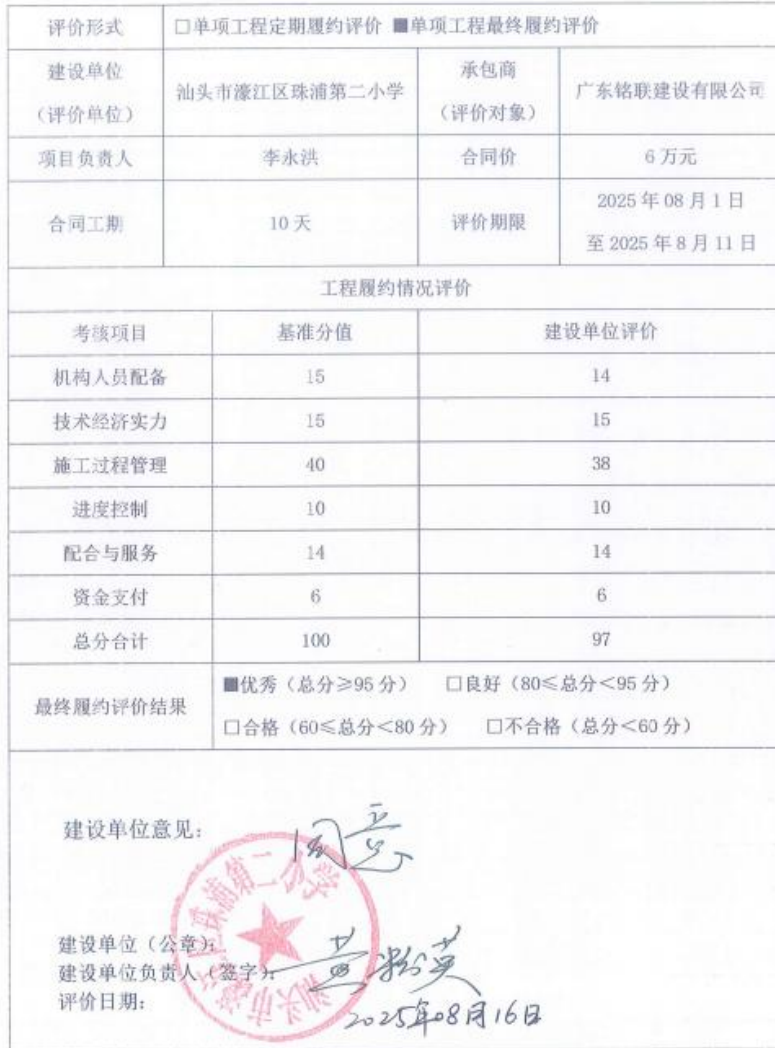 评价形式 □单项工程定期履约评价 ■单项工程最终履约评价
建设单位
（评价单位）
汕头市濠江区珠浦第二小学
承包商
（评价对象）
广东铭联建设有限公司
项目负责人 李永洪 合同价 6万元
合同工期 10天 评价期限
2025年08月1日
至2025年8月11日
工程履约情况评价
考核项目 基准分值 建设单位评价
机构人员配备 15 14
技术经济实力 15 15
施工过程管理 40 38
进度控制 10 10
配合与服务 14 14
资金支付 6 6
总分合计 100 97
最终履约评价结果
■优秀（总分≥95分） □良好（80≤总分＜95分）
□合格（60≤总分＜80分） □不合格（总分＜60分）
建设单位意见：
同意
汕头市濠江区珠浦第二小学
建设单位（公章）：
建设单位负责人（签字）：
评价日期：
2025年08月16日